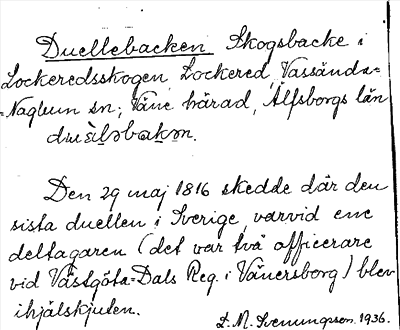 Duellebacken Skogsbacke i
Lockeredsskogen, Lockered, Vassända=
=Naglum sn; Väne härad, Älfsborgs län
Den 29 maj 1816 skedde där den
sista duellen i Sverige varvid ene
deltagaren (det var två officerare
vid Västgöta-Dals Reg. i Vänersborg) blev
ihjälskjuten.
L. M. Svenungsson 1936.